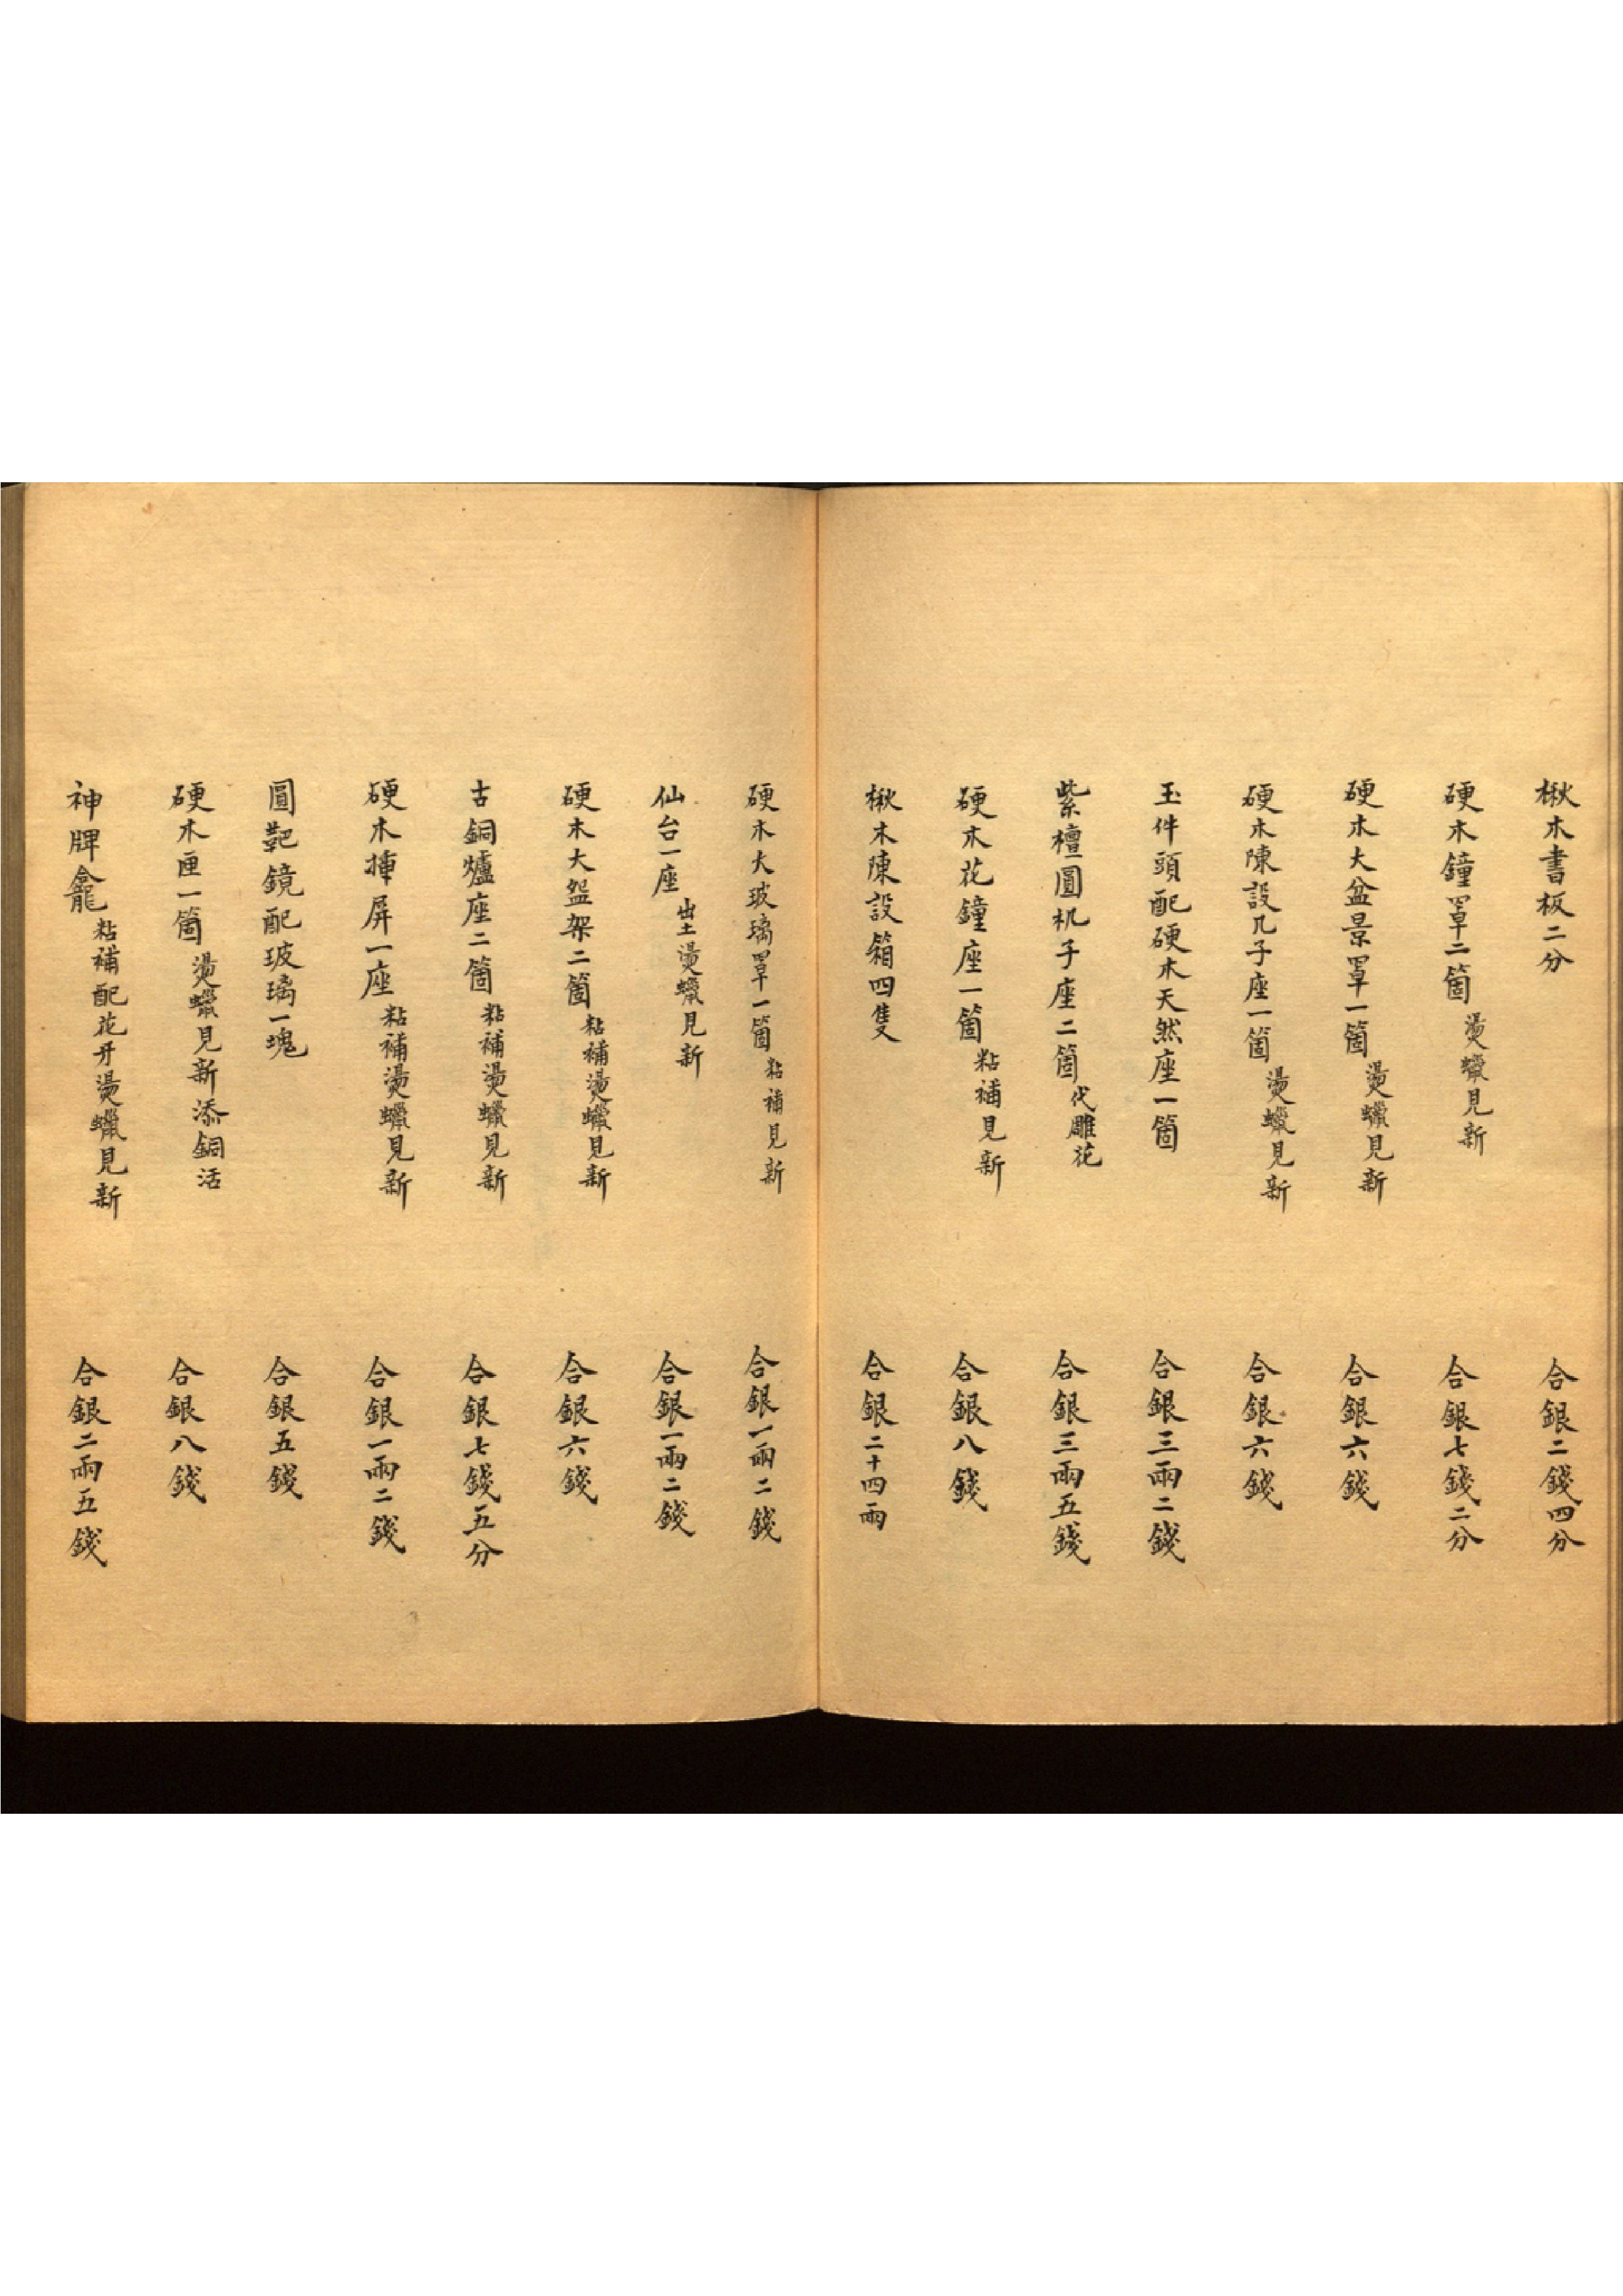 楸木書板二分 合銀二錢四分
硬木鐘罩二箇 燙蠟見新 合銀七錢二分
硬木大盆景罩一箇 燙蠟見新 合銀六錢
硬木陳設几子座一箇 燙蠟見新 合銀六錢
玉件頭配硬木天然座一箇 合銀三兩二錢
紫檀圓杌子座二箇 代雕花 合銀三兩五錢
硬木花鐘座一箇 粘補見新 合銀八錢
楸木陳設箱四隻 合銀二十四兩
硬木大玻璃罩一箇 粘補見新 合銀一兩二錢
仙台一座 出土燙蠟見新 合銀一兩二錢
硬木大盌架二箇 粘補燙蠟見新 合銀六錢
古銅爐座二箇 粘補燙蠟見新 合銀七錢五分
硬木揷屏一座 粘補燙蠟見新 合銀一兩二錢
圓靶鏡配玻璃一塊 合銀五錢
硬木匣一箇 燙蠟見新添銅活 合銀八錢
神牌龕 粘補配花牙燙蠟見新 合銀二兩五錢